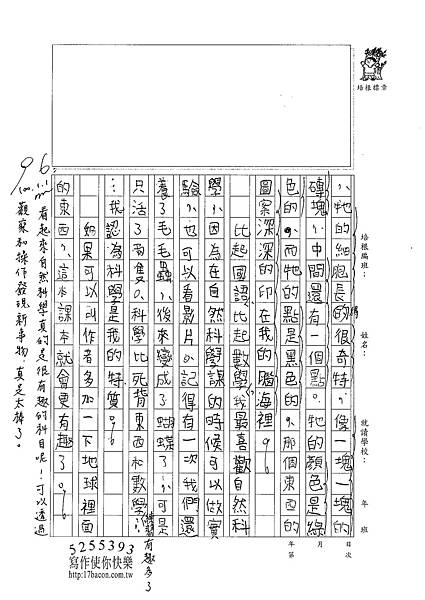 培根標章
培根編班：
姓名：
就讀學校：
年 班
年 月 日
第 次
，牠的細胞長的很奇特，像一塊一塊的
磚塊，中間還有一個點。牠的顏色是綠
色的，而牠的點是黑色的，那個東西的
圖案深深的印在我的腦海裡。
比起國語比起數學我最喜歡自然科
學，因為在自然科學課的時候可以做實
驗，也可以看影片。記得有一次我們還
養了毛毛蟲，後來變成了蝴蝶，可是
只活了兩隻。科學比死背東西和數學
有趣多了
…我認為科學是我的特質。
如果可以叫作者多加一下地球裡面
的東西，這本課本就會更有趣了。
96
看起來自然科學真的是很有趣的科目呢！可以透過
觀察和操作發現新事物，真是太棒了。
5255393
寫作使你快樂
http://17bacon.com.tw